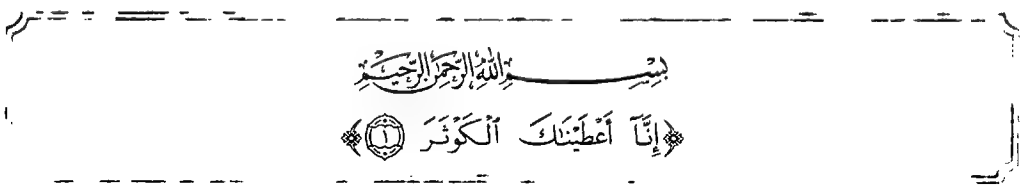 بِسْمِ اللَّهِ الرَّحْمَٰنِ الرَّحِيمِ
﴿إِنَّآ أَعْطَيْنَٰكَ ٱلْكَوْثَرَ ١﴾